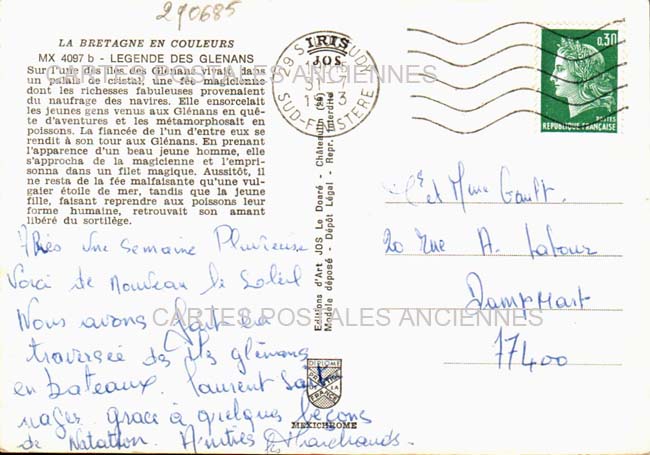 290685
LA BRETAGNE EN COULEURS
MX 4097 b - LEGENDE DES GLENANS
Sur l'une des îles des Glénans vivait, dans
un palais de cristal, une fée magicienne
dont les richesses fabuleuses provenaient
du naufrage des navires. Elle ensorcelait
les jeunes gens venus aux Glénans en quê-
te d'aventures et les métamorphosait en
poissons. La fiancée de l'un d'entre eux se
rendit à son tour aux Glénans. En prenant
l'apparence d'un beau jeune homme, elle
s'approcha de la magicienne et l'empri-
sonna dans un filet magique. Aussitôt, il
ne resta de la fée malfaisante qu'une vul-
gaire étoile de mer, tandis que la jeune
fille, faisant reprendre aux poissons leur
forme humaine, retrouvait son amant
libéré du sortilège.
Après une semaine Pluvieuse
Voici de Nouveau le Soleil
Nous avons fait la
traversée des Iles glénans
en bateaux. Laurent sait
nager grace à quelques leçons
de Natation. Amitiés Marchands.
IRIS
JOS
Editions d'Art JOS Le Doaré - Châteaulin (29)
Modèle déposé - Dépôt Légal - Repr. Interdite
DIPLOME
PRESTIGE
DE LA
FRANCE
MEXICHROME
29 SUD
SUD-FINISTERE
0,30
POSTES
REPUBLIQUE FRANÇAISE
Mr et Mme Gault.
20 Rue A. Labour
Dampmart
77400
CARTES POSTALES ANCIENNES
CARTES POSTALES ANCIENNES